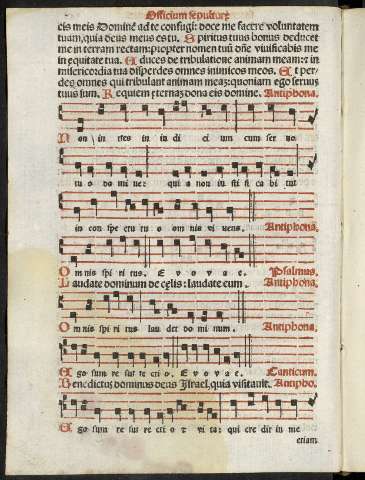 Officium sepulturę
cis meis Domine ad te confugi: doce me facere voluntatem
tuam, quia deus meus es tu. Spiritus tuus bonus deducet
me in terram rectam: propter nomen tuū dñe viuificabis me
in equitate tua. Educes de tribulatione animam meam: et in
misericordia tua disperdes omnes inimicos meos. Et per-
des omnes qui tribulant animam meam: quoniam ego seruus
tuus sum. Requiem eternaȝ dona eis domine. Antiphona.
Non in tres in iu di ci um cum ser uo
tu o do mi ne: qui a non iu sti fi ca bi tur
in con spe ctu tu o om nis vi uens. Antiphona.
Omnis spi ri tus. E v o v a e. Psalmus.
Laudate dominum de celis: laudate eum. Antiphona.
Omnis spi ri tus lau det do mi num. Antiphona.
Ego sum re sur re ctio. E v o v a e. Canticum.
Benedictus dominus deus Israel, quia visitauit. Antipho.
Ego sum re sur re cti o ⁊ vi ta: qui cre dit in me
etiam